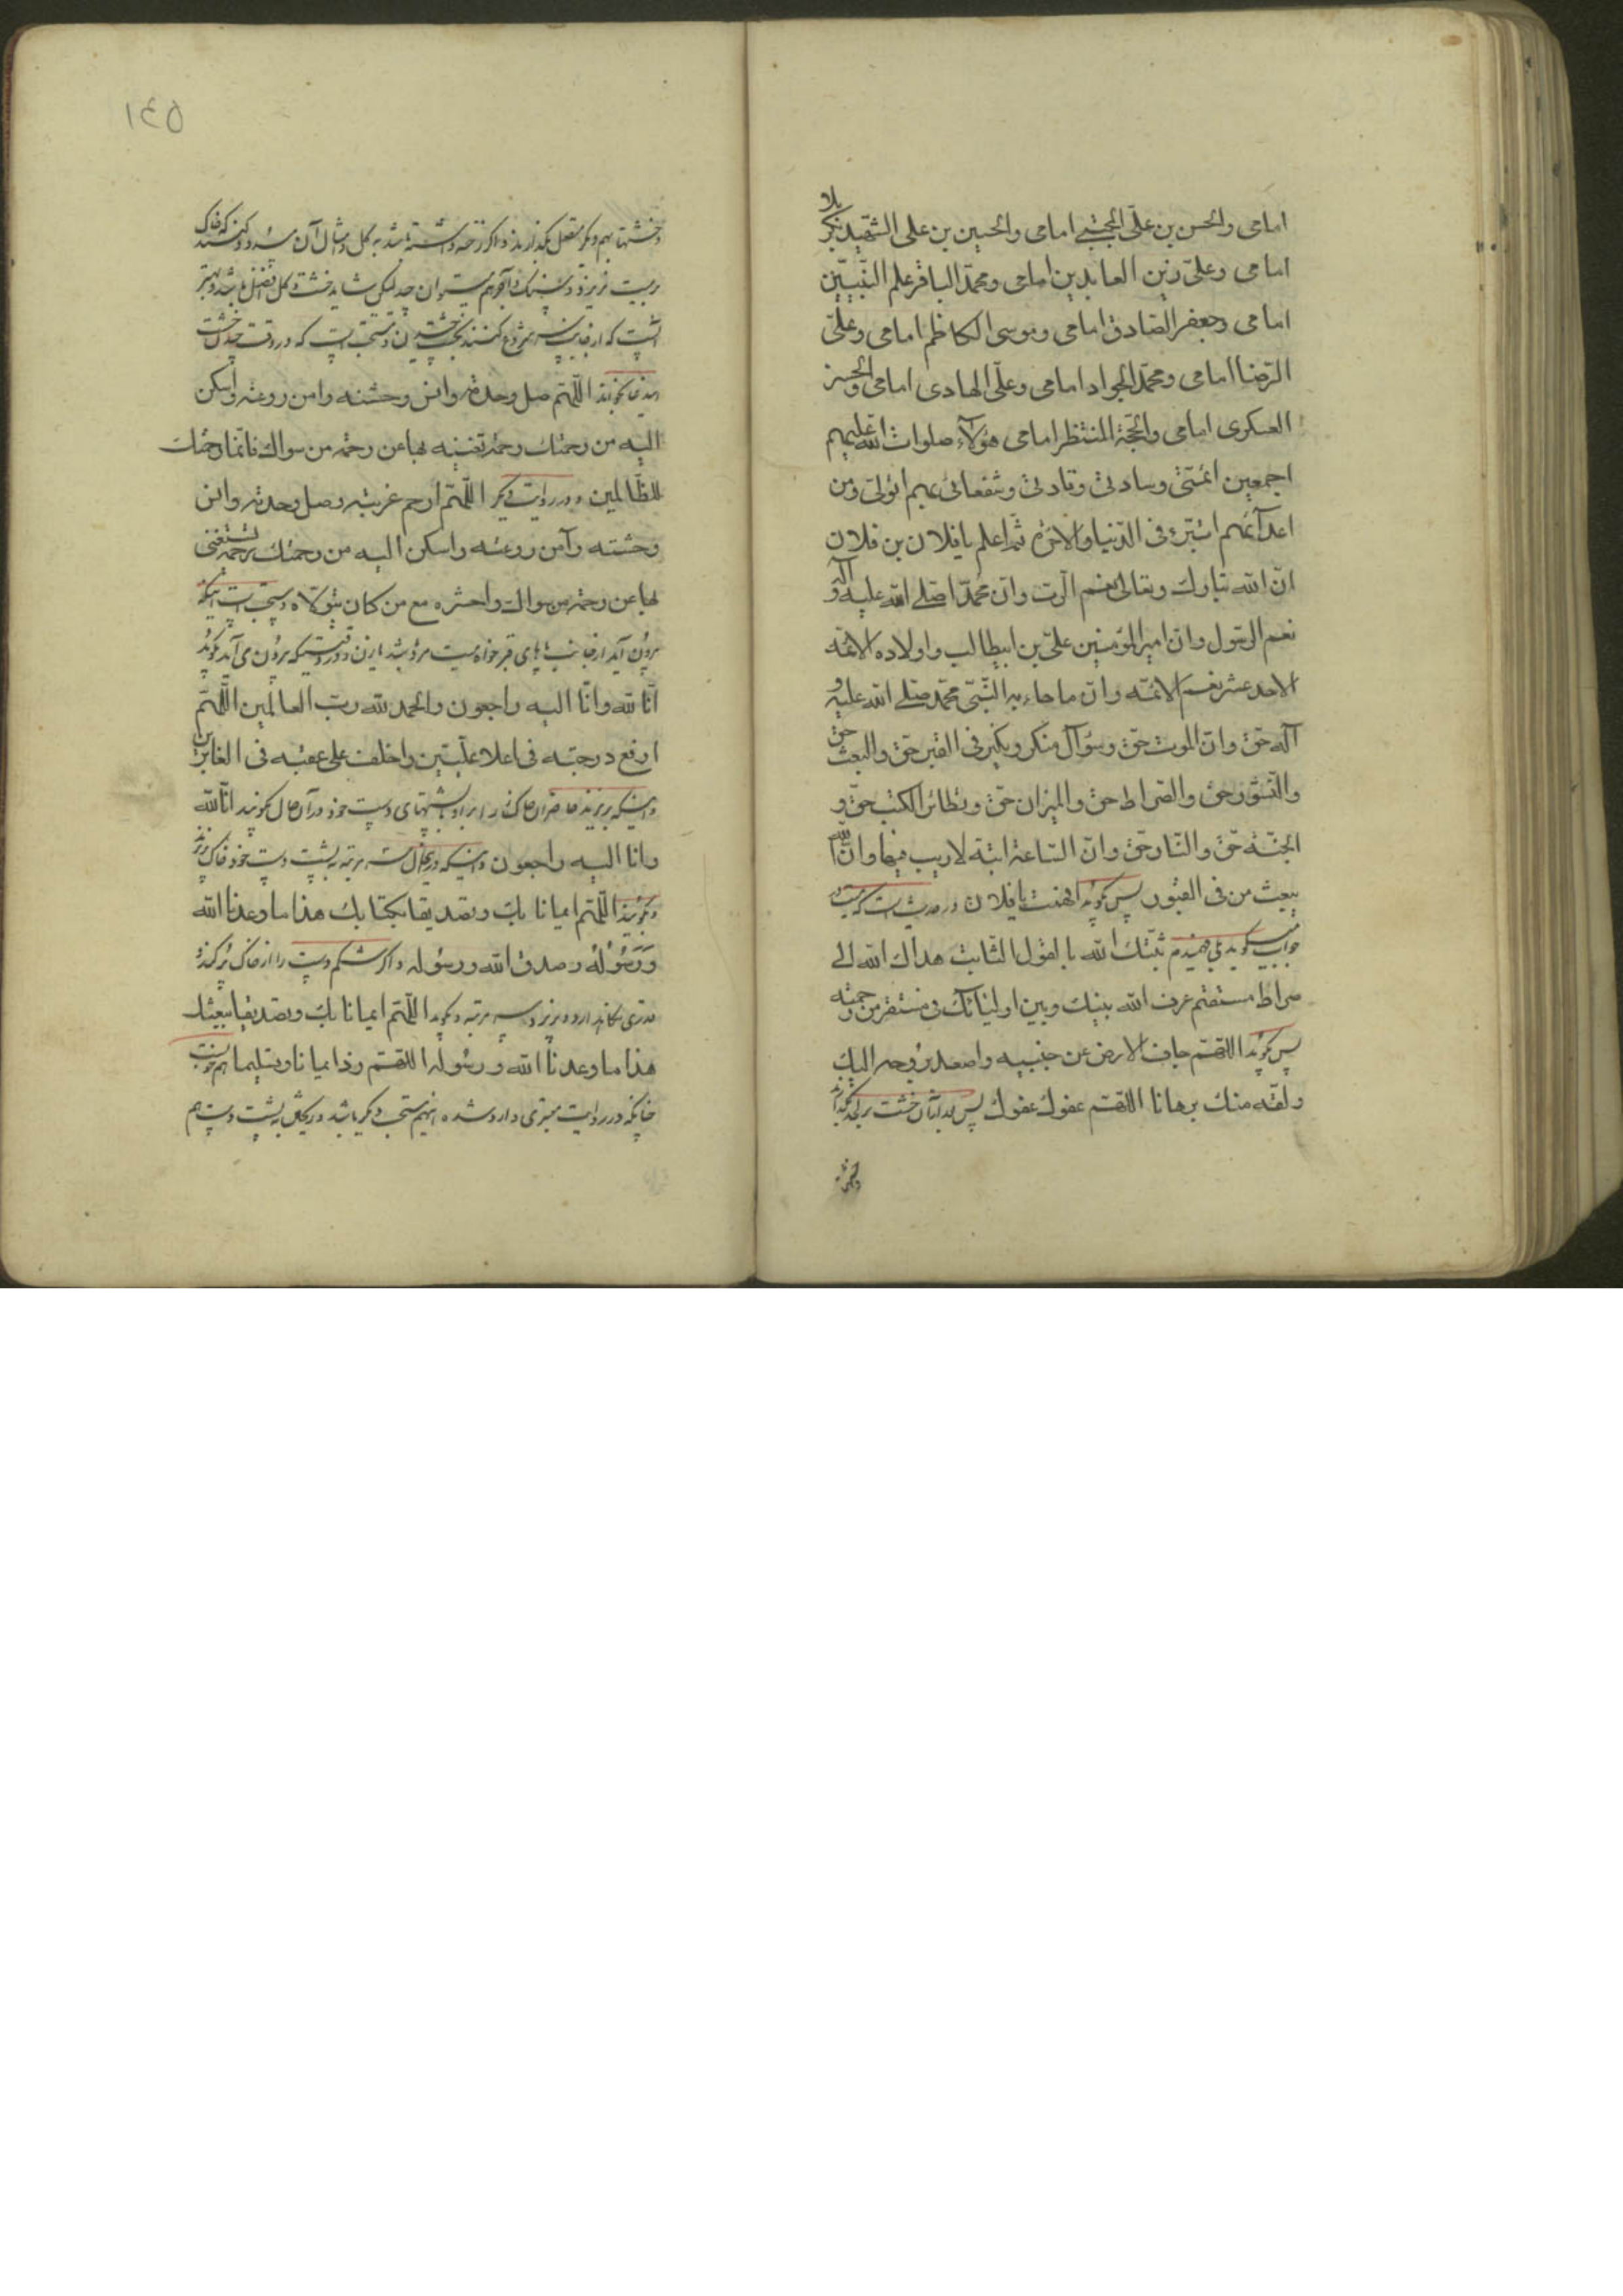 امامی والحسن بن علی المجتبی امامی والحسین بن علی الشهید بکربلا
امامی وعلی زین العابدین امامی ومحمد الباقر علم النبیین
امامی وجعفر الصادق امامی وموسی الکاظم امامی وعلی
الرضا امامی ومحمد الجواد امامی وعلی الهادی امامی والحسن
العسکری امامی والحجة المنتظر امامی هؤلآء صلوات الله علیهم
اجمعین ائمتی وسادتی وقادتی وشفعائی بهم اتولی ومن
اعدآئهم اتبرء فی الدنیا والاخرة ثم اعلم یا فلان بن فلان
ان الله تبارک وتعالی نعم الرب وان محمدا صلی الله علیه وآله
نعم الرسول وان امیر المؤمنین علی بن ابیطالب واولاده الائمه
الاحد عشر نعم الائمه وان ما جاء به النبی محمد صلی الله علیه و
آله حق وان الموت حق وسؤال منکر ونکیر فی القبر حق والبعث حق
والنشور حق والصراط حق والمیزان حق وتطائر الکتب حق و
الجنة حق والنار حق وان الساعة اتیة لاریب فیها وان الله
یبعث من فی القبور پس بگوید افهمت یا فلان در حدیث است که میت در
جواب میگوید بلی فهمیدم ثبتک الله بالقول الثابت هداک الله الی
صراط مستقیم عرف الله بینک وبین اولیائک فی مستقر من رحمته
پس بگوید اللهم جاف الارض عن جنبیه واصعد بروحه الیک
ولقه منک برهانا اللهم عفوک عفوک پس بدانشان خشت بر لحد بگذارند
وخشتها
١٤٥
وخشتها بهم دیگر متصل بگذارند و اگر رخنه داشته باشد به گل و مثال آن مسدود کنند که خاک
بر میت نریزد و بسنگ و آجر هم میتوان چید لیکن شاید خشت و گل افضل باشد و بهتر
آنست که از جانب سر شروع کنند بخشت چیدن و مستحب است که در وقت چیدن خشت
این دعا بخوانند اللهم صل وحدته وانس وحشته وامن روعته واسکن
الیه من رحمتک رحمة تغنیه بها عن رحمة من سواک فانما رحمتک
للظالمین و در روایت دیگر اللهم ارحم غربته وصل وحدته وانس
وحشته وآمن روعته واسکن الیه من رحمتک رحمة یستغنی
بها عن رحمة من سواک واحشره مع من کان یتولاه و مستحب است اینکه
برون آید از جانب پاهای قبر خواه میت مرد باشد یا زن و در وقتیکه برون می آید بگوید
انا لله وانا الیه راجعون والحمد لله رب العالمین اللهم
ارفع درجته فی اعلا علیین واخلف علی عقبه فی الغابرین
و اینکه بریزند حاضران خاک را بر او به پشتهای دست خود و در آن حال بگویند انا لله
وانا الیه راجعون و اینکه در یکحال سه مرتبه به پشت دست خود خاک بریزند
و بگویند اللهم ایمانا بک وتصدیقا بکتابک هذا ما وعدنا الله
ورسوله وصدق الله ورسوله و اگر شکم دست را از خاک پر کند و
قدری نگاه دارد و بریزد سه مرتبه و بگوید اللهم ایمانا بک وتصدیقا ببعثک
هذا ما وعدنا الله ورسوله اللهم زدنا ایمانا وتسلیما هم خوبست
چنانکه در روایت معتبری وارد شده اینهم مستحب دیگر باشد و در یکی به پشت دست هم